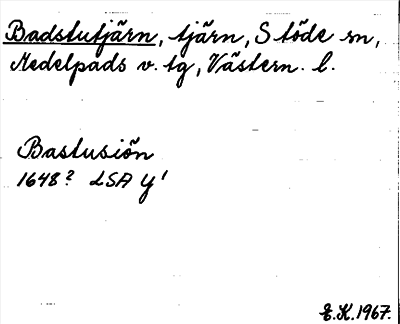 Badstutjärn, tjärn, Stöde sn,
Medelpads v. tg, Västern. l.
Bastusiön
1648? LSA Y'
E.K. 1967.